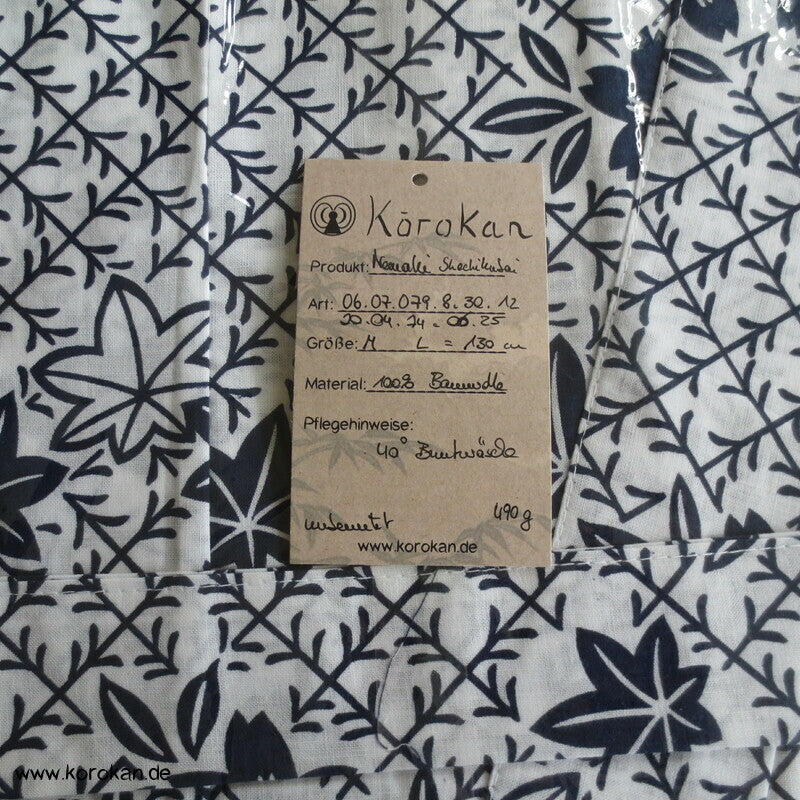 Kōrokan
Produkt: Nemaki Shochikubai
Art: 06.07.079.8.30.12
20.04.14-06.25
Größe: M L = 130 cm
Material: 100% Baumwolle
Pflegehinweise:
40° Buntwäsche
490g
www.korokan.de
www.korokan.de